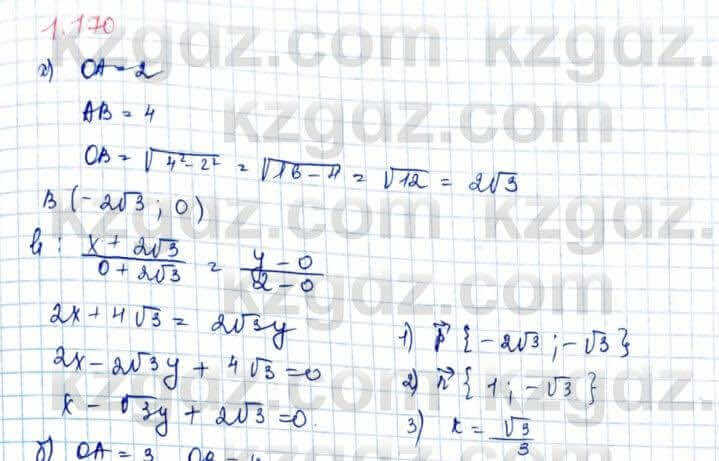 1.170
а) OA = 2
AB = 4
OB = √4²-2² = √16-4 = √12 = 2√3
B (-2√3; 0)
l₁: x+2√3/0+2√3 = y-0/2-0
2x + 4√3 = 2√3y
2x - 2√3y + 4√3 = 0
x - √3y + 2√3 = 0.
1) p⃗ {-2√3; -√3}
2) n⃗ {1; -√3}
3) k = √3/3
б) OA = 3
kzgdz.com kzgdz.com
kzgdz.com
kzgdz.com kzgdz.com
kzgdz.com
kzgdz.com kzgdz.com